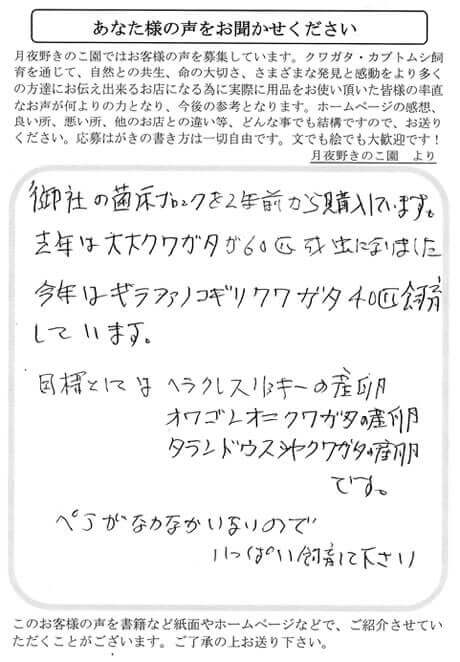 あなた様の声をお聞かせください
月夜野きのこ園ではお客様の声を募集しています。クワガタ・カブトムシ飼
育を通じて、自然との共生、命の大切さ、さまざまな発見と感動をより多く
の方達にお伝え出来るお店になる為に実際に用品をお使い頂いた皆様の率直
なお声が何よりの力となり、今後の参考となります。ホームページの感想、
良い所、悪い所、他のお店との違い等、どんな事でも結構ですので、お送り
ください。応募はがきの書き方は一切自由です。文でも絵でも大歓迎です！
月夜野きのこ園　より
御社の菌床ブロックを2年前から購入しています。
去年は大大クワガタが60匹羽出になりました
今年はギラファノコギリクワガタ40匹飼育
しています。
目標としては ヘラクレスリッキーの産卵
オウゴンオニクワガタの産卵
タランドウスツヤクワガタの産卵
です。
ペアがなかなかいないので
いっぱい飼育して下さい
このお客様の声を書籍など紙面やホームページなどで、ご紹介させてい
ただくことがございます。ご了承の上お送り下さい。